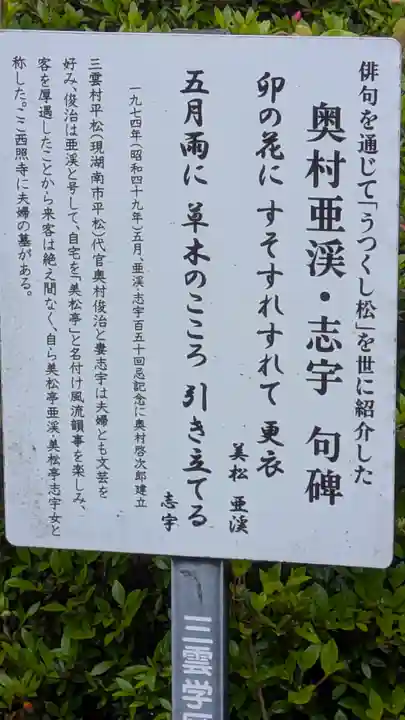 俳句を通じて「うつくし松」を世に紹介した
奥村亜渓・志宇 句碑
卯の花に すそすれすれて 更衣
美松 亜渓
五月雨に 草木のこころ 引き立てる
志宇
一九七四年(昭和四十九年)五月、亜渓・志宇百五十回忌記念に奥村啓次郎建立
三雲村平松(現湖南市平松)代官奥村俊治と妻志宇は夫婦とも文芸を
好み、俊治は亜渓と号して、自宅を「美松亭」と名付け風流韻事を楽しみ、
客を厚遇したことから来客は絶え間なく、自ら美松亭亜渓・美松亭志宇女と
称した。ここ西照寺に夫婦の墓がある。
三雲学区